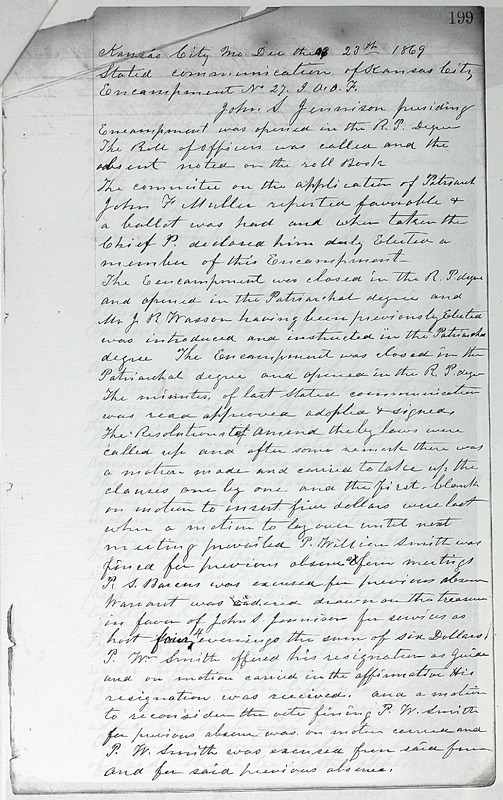 199
Kansas City Mo Dec the 23th 1869
Stated communication of Kansas City
Encampment No 27. I.O.O.F.
John S Jennison presiding
Encampment was opened in the R.P. Degree
The Roll of officers was called and the
absent noted on the roll Book
The committee on the application of Patriarch
John F Muller reported favorable &
a ballot was had and when taken the
Chief P. declared him duly Elected a
member of this Encampment
The Encampment was closed in the R.P. degree
and opened in the Patriarchal degree and
Mr J. R. Wasson having been previously Elected
was introduced and instructed in the Patriarchal
degree The Encampment was closed in the
Patriarchal degree and opened in the R.P. degree
The minutes, of last Stated communication
was read approved adopted & signed,
The Resolutions to amend the by laws were
called up and after some remark there was
a motion made and carried to take up the
clauses one by one and the first blank
on motion to insert five dollars were lost
when a motion to lay over until next
meeting prevailed P. William Smith was
fined for previous absence & from meetings
P. S. was excused for previous absence
Warrant was ordered drawn on the treasurer
in favor of John S Jennison for services as
host four 4 evenings the sum of six Dollars
P. Wm Smith offered his resignation as Guide
and on motion carried in the affirmative His
resignation was received. and a motion
to reconsider the vote fining P. W. Smith
for previous absence was on motion carried and
P. W. Smith was excused from said fine
and for said previous absence.